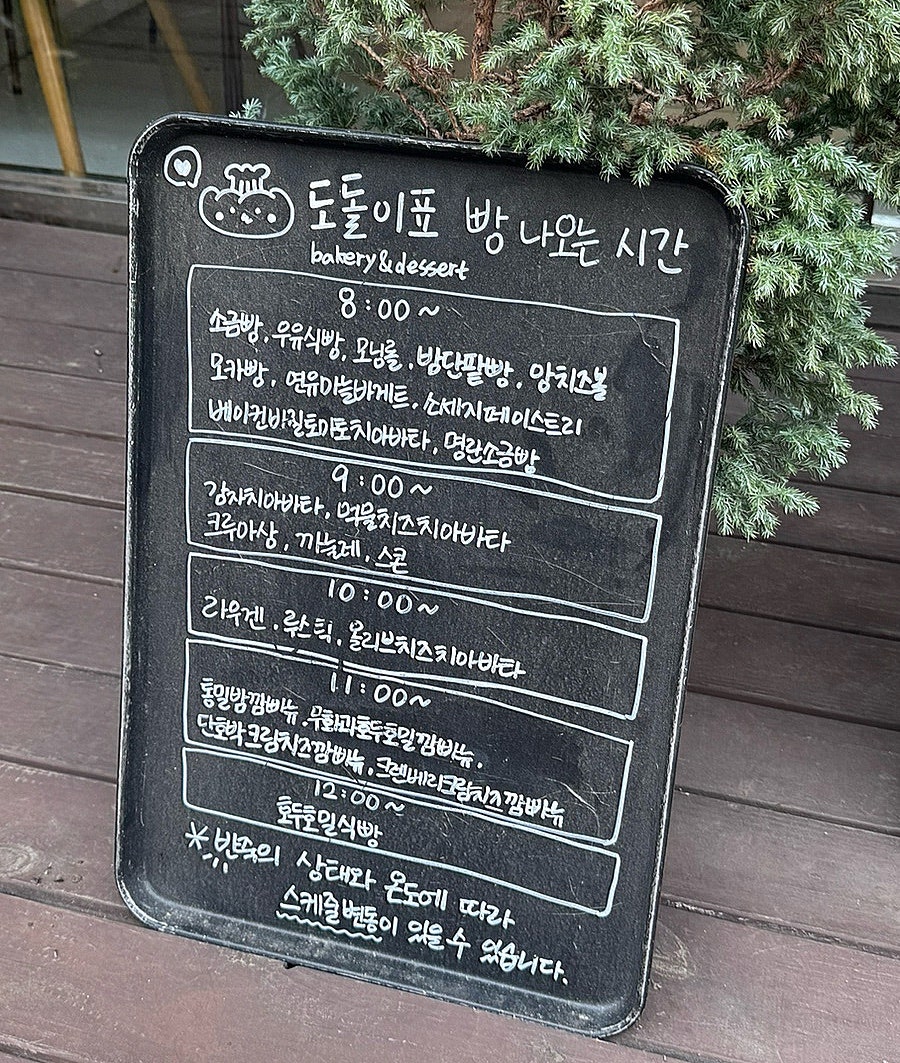 도돌이표 빵 나오는 시간
bakery&dessert
8:00~
소금빵, 우유식빵, 모닝롤, 밤단팥빵, 앙치즈볼
모카빵, 연유마늘바게트, 소세지페이스트리
베이컨바질토마토치아바타, 명란소금빵
9:00~
감자치아바타, 먹물치즈치아바타
크루아상, 까눌레, 스콘
10:00~
라우겐, 루스틱, 올리브치즈치아바타
11:00~
통밀밤깜빠뉴, 무화과호두호밀깜빠뉴,
단호박크림치즈깜빠뉴, 크렌베리크림치즈깜빠뉴
12:00~
호두호밀식빵
*반죽의 상태와 온도에 따라
스케줄변동이 있을 수 있습니다.